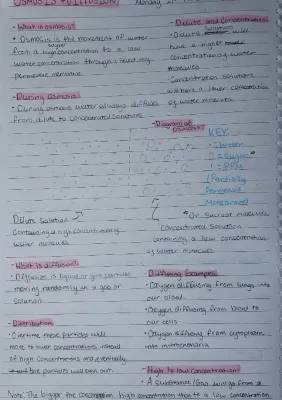 OSMOSIS + DIFFUSION
Monday
What is osmosis?
• Osmosis is the movement of water
from a high concentration to a low
water concentration through a
permeable membrane
• During Osmosis
• During osmosis water always diffuses
from dilute to concentrated solutions
• Dilute and Concentrated
• Dilute will
have a higher
concentration of water
molecules
• Concentration solutions
will have a lower concentration
of water molecules
• Diagram of
Osmosis
KEY:
= Water
= Sugar
= PPM
(Partially
Permeable
Membrane)
Dilute Solution
Containing a high concentration of
water molecules
Or Sucrose molecules
Concentrated Solution
containing a low concentration
of water molecules
• What is diffusion?
• Diffusion is liquid or gas particles
moving randomly in a gas or
solution
• Distribution
• Overtime these particles will
move to lower concentrations instead
of high concentrations and eventually
the particles will even out.
• Diffusing Examples
• Oxygen diffusing from lungs into
our blood.
• Oxygen diffusing from blood to
our cells
• Oxygen diffusing from cytoplasm
into mitochondria
• High to low concentration?
• A substance/Gas will go from a
Note: The bigger the concentration high concentration than to a low concentration